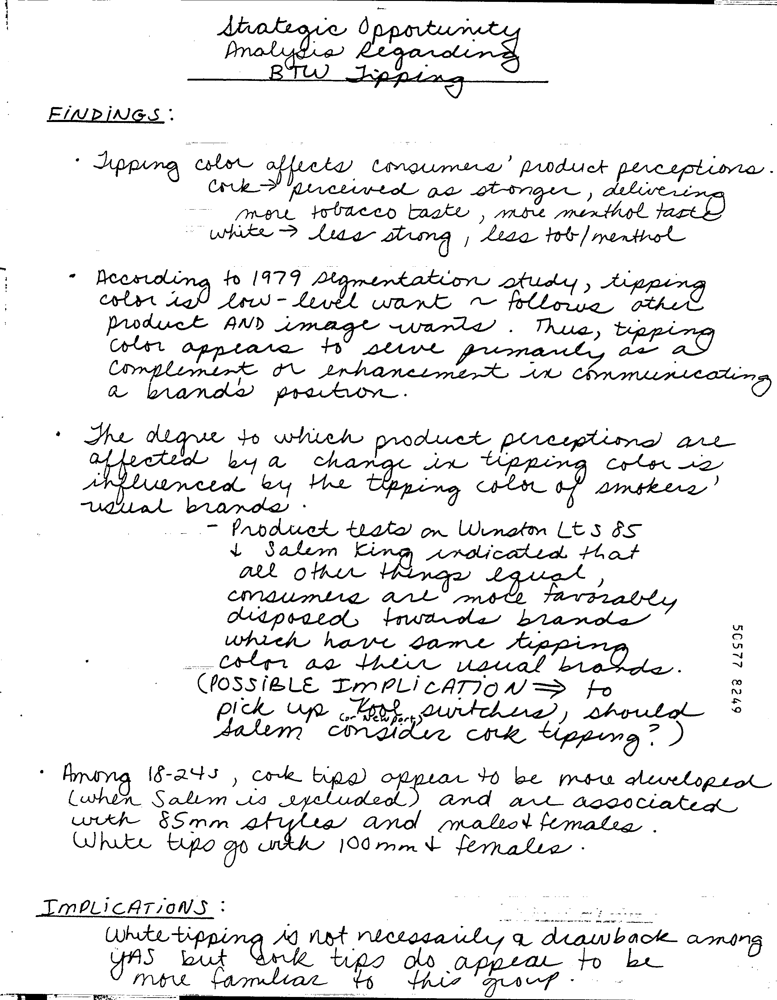 Strategic Opportunity
Analysis Regarding
BTW Tipping
FINDINGS:
· Tipping color affects consumers' product perceptions.
cork → perceived as stronger, delivering
more tobacco taste, more menthol taste
white → less strong, less tob/menthol
· According to 1979 segmentation study, tipping
color is low-level want ~ follows other
product AND image wants. Thus, tipping
color appears to serve primarily as a
complement or enhancement in communicating
a brand's position.
· The degree to which product perceptions are
affected by a change in tipping color is
influenced by the tipping color of smokers'
usual brands.
- Product tests on Winston Lts 85
+ Salem King indicated that
all other things equal,
consumers are more favorably
disposed towards brands
which have same tipping
color as their usual brands.
(POSSIBLE IMPLICATION ⇒ to
pick up Kool (or Newport) switchers, should
Salem consider cork tipping?)
· Among 18-24s, cork tips appear to be more developed
(when Salem is excluded) and are associated
with 85mm styles and males + females.
White tips go with 100mm + females.
IMPLICATIONS:
White tipping is not necessarily a drawback among
YAS but cork tips do appear to be
more familiar to this group.
50577 8249